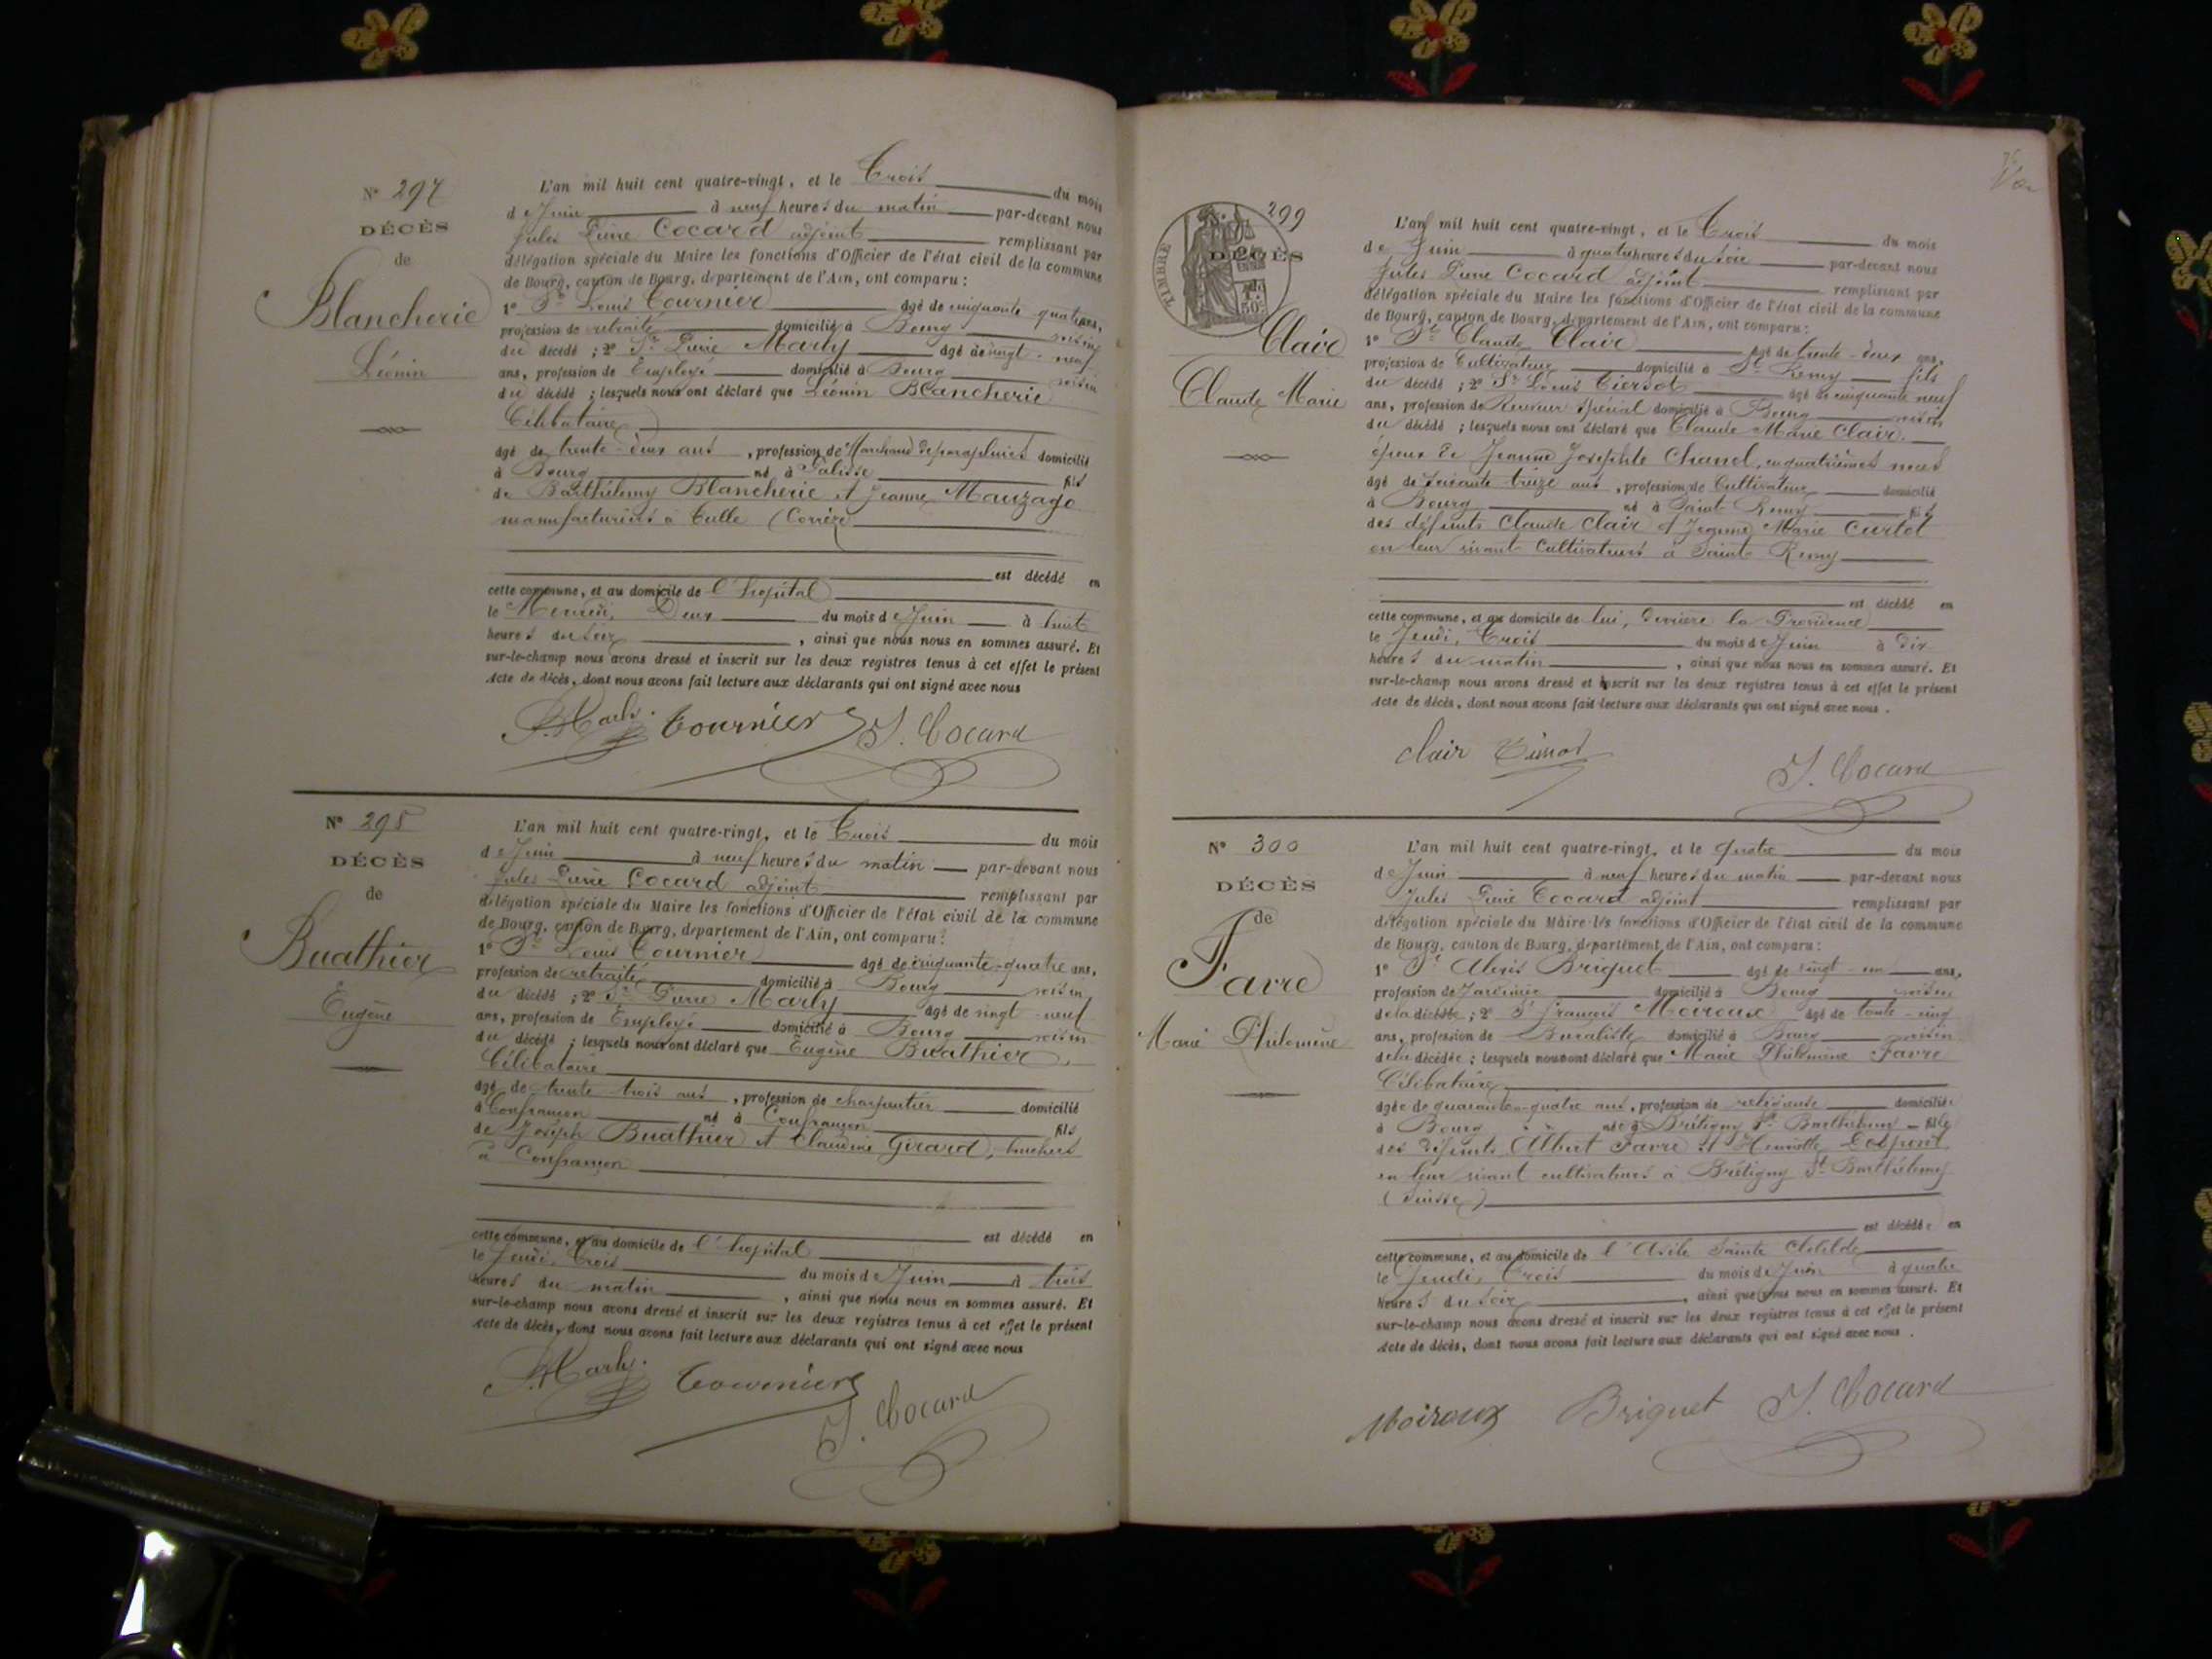 N° 297
DÉCÈS
de
Blancherie
Léonin
L'an mil huit cent quatre-vingt, et le Trois du mois
de Juin à neuf heures du matin par-devant nous
Jules Pierre Cocard adjoint remplissant par
délégation spéciale du Maire les fonctions d'Officier de l'état civil de la commune
de Bourg, canton de Bourg, département de l'Ain, ont comparu :
1° Sr Louis Tournier âgé de cinquante quatre ans,
profession de retraité domicilié à Bourg voisin
du décédé ; 2° Sr Pierre Marly âgé de vingt-neuf
ans, profession de Employé domicilié à Bourg voisin
du décédé ; lesquels nous ont déclaré que Léonin Blancherie
Célibataire
âgé de trente-deux ans, profession de Marchand de parapluies domicilié
à Bourg né à fils
de Barthélemy Blancherie et Jeanne Mauzago
manufacturiers à Tulle (Corrèze
est décédé en
cette commune, et au domicile de l'hôpital
le Mercredi, Deux du mois de Juin à huit
heures du soir, ainsi que nous nous en sommes assuré. Et
sur-le-champ nous avons dressé et inscrit sur les deux registres tenus à cet effet le présent
Acte de décès, dont nous avons fait lecture aux déclarants qui ont signé avec nous
P. Marly. Tournier J. Cocard
N° 298
DÉCÈS
de
Buathier
Eugène
L'an mil huit cent quatre-vingt, et le Trois du mois
de Juin à neuf heures du matin par-devant nous
Jules Pierre Cocard adjoint remplissant par
délégation spéciale du Maire les fonctions d'Officier de l'état civil de la commune
de Bourg, canton de Bourg, département de l'Ain, ont comparu :
1° Sr Louis Tournier âgé de cinquante-quatre ans,
profession de retraité domicilié à Bourg voisin
du décédé ; 2° Sr Pierre Marly âgé de vingt-neuf
ans, profession de Employé domicilié à Bourg voisin
du décédé ; lesquels nous ont déclaré que Eugène Buathier
Célibataire
âgé de trente trois ans, profession de charpentier domicilié
à Confrançon né à Confrançon fils
de Joseph Buathier et Claudine Girard,
à Confrançon
est décédé en
cette commune, et au domicile de l'hôpital
le Jeudi, Trois du mois de Juin à trois
heures du matin, ainsi que nous nous en sommes assuré. Et
sur-le-champ nous avons dressé et inscrit sur les deux registres tenus à cet effet le présent
Acte de décès, dont nous avons fait lecture aux déclarants qui ont signé avec nous
P. Marly. Tournier
J. Cocard
299
TIMBRE
DÉCÈS
Clair
Claude Marie
L'an mil huit cent quatre-vingt, et le Trois du mois
de Juin à quatre heures du soir par-devant nous
Jules Pierre Cocard adjoint remplissant par
délégation spéciale du Maire les fonctions d'Officier de l'état civil de la commune
de Bourg, canton de Bourg, département de l'Ain, ont comparu :
1° Sr Claude Clair âgé de trente-deux ans,
profession de Cultivateur domicilié à St Remy fils
du décédé ; 2° Sr Louis Tiersot âgé de cinquante neuf
ans, profession de Receveur spécial domicilié à Bourg voisin
du décédé ; lesquels nous ont déclaré que Claude Marie Clair,
époux de Jeanne Josephte Chanel, en quatrièmes noces
âgé de soixante treize ans, profession de Cultivateur domicilié
à Bourg né à Saint Remy fils
des défunts Claude Clair et Jeanne Marie Curtet
en leur vivant Cultivateurs à Saint Remy
est décédé en
cette commune, et au domicile de lui, derrière la Providence
le Jeudi, Trois du mois de Juin à dix
heures du matin, ainsi que nous nous en sommes assuré. Et
sur-le-champ nous avons dressé et inscrit sur les deux registres tenus à cet effet le présent
Acte de décès, dont nous avons fait lecture aux déclarants qui ont signé avec nous.
Clair Tiersot
J. Cocard
N° 300
DÉCÈS
de
Favre
Marie Philomène
L'an mil huit cent quatre-vingt, et le Quatre du mois
de Juin à neuf heures du matin par-devant nous
Jules Pierre Cocard adjoint remplissant par
délégation spéciale du Maire les fonctions d'Officier de l'état civil de la commune
de Bourg, canton de Bourg, département de l'Ain, ont comparu :
1° Sr Alexis Briquet âgé de vingt-un ans,
profession de Jardinier domicilié à Bourg voisin
de la décédée ; 2° Sr François Moiroux âgé de trente-cinq
ans, profession de Buraliste domicilié à Bourg voisin
de la décédée ; lesquels nous ont déclaré que Marie Philomène Favre
Célibataire
âgée de quarante-quatre ans, profession de religieuse domiciliée
à Bourg née à Brétigny St Barthélemy fille
des défunts Albert Favre et Henriette
en leur vivant cultivateurs à Brétigny St Barthélemy
(Suisse)
est décédée en
cette commune, et au domicile de l'Asile Sainte Clotilde
le Jeudi, Trois du mois de Juin à quatre
heures du soir, ainsi que nous nous en sommes assuré. Et
sur-le-champ nous avons dressé et inscrit sur les deux registres tenus à cet effet le présent
Acte de décès, dont nous avons fait lecture aux déclarants qui ont signé avec nous.
Moiroux Briquet J. Cocard